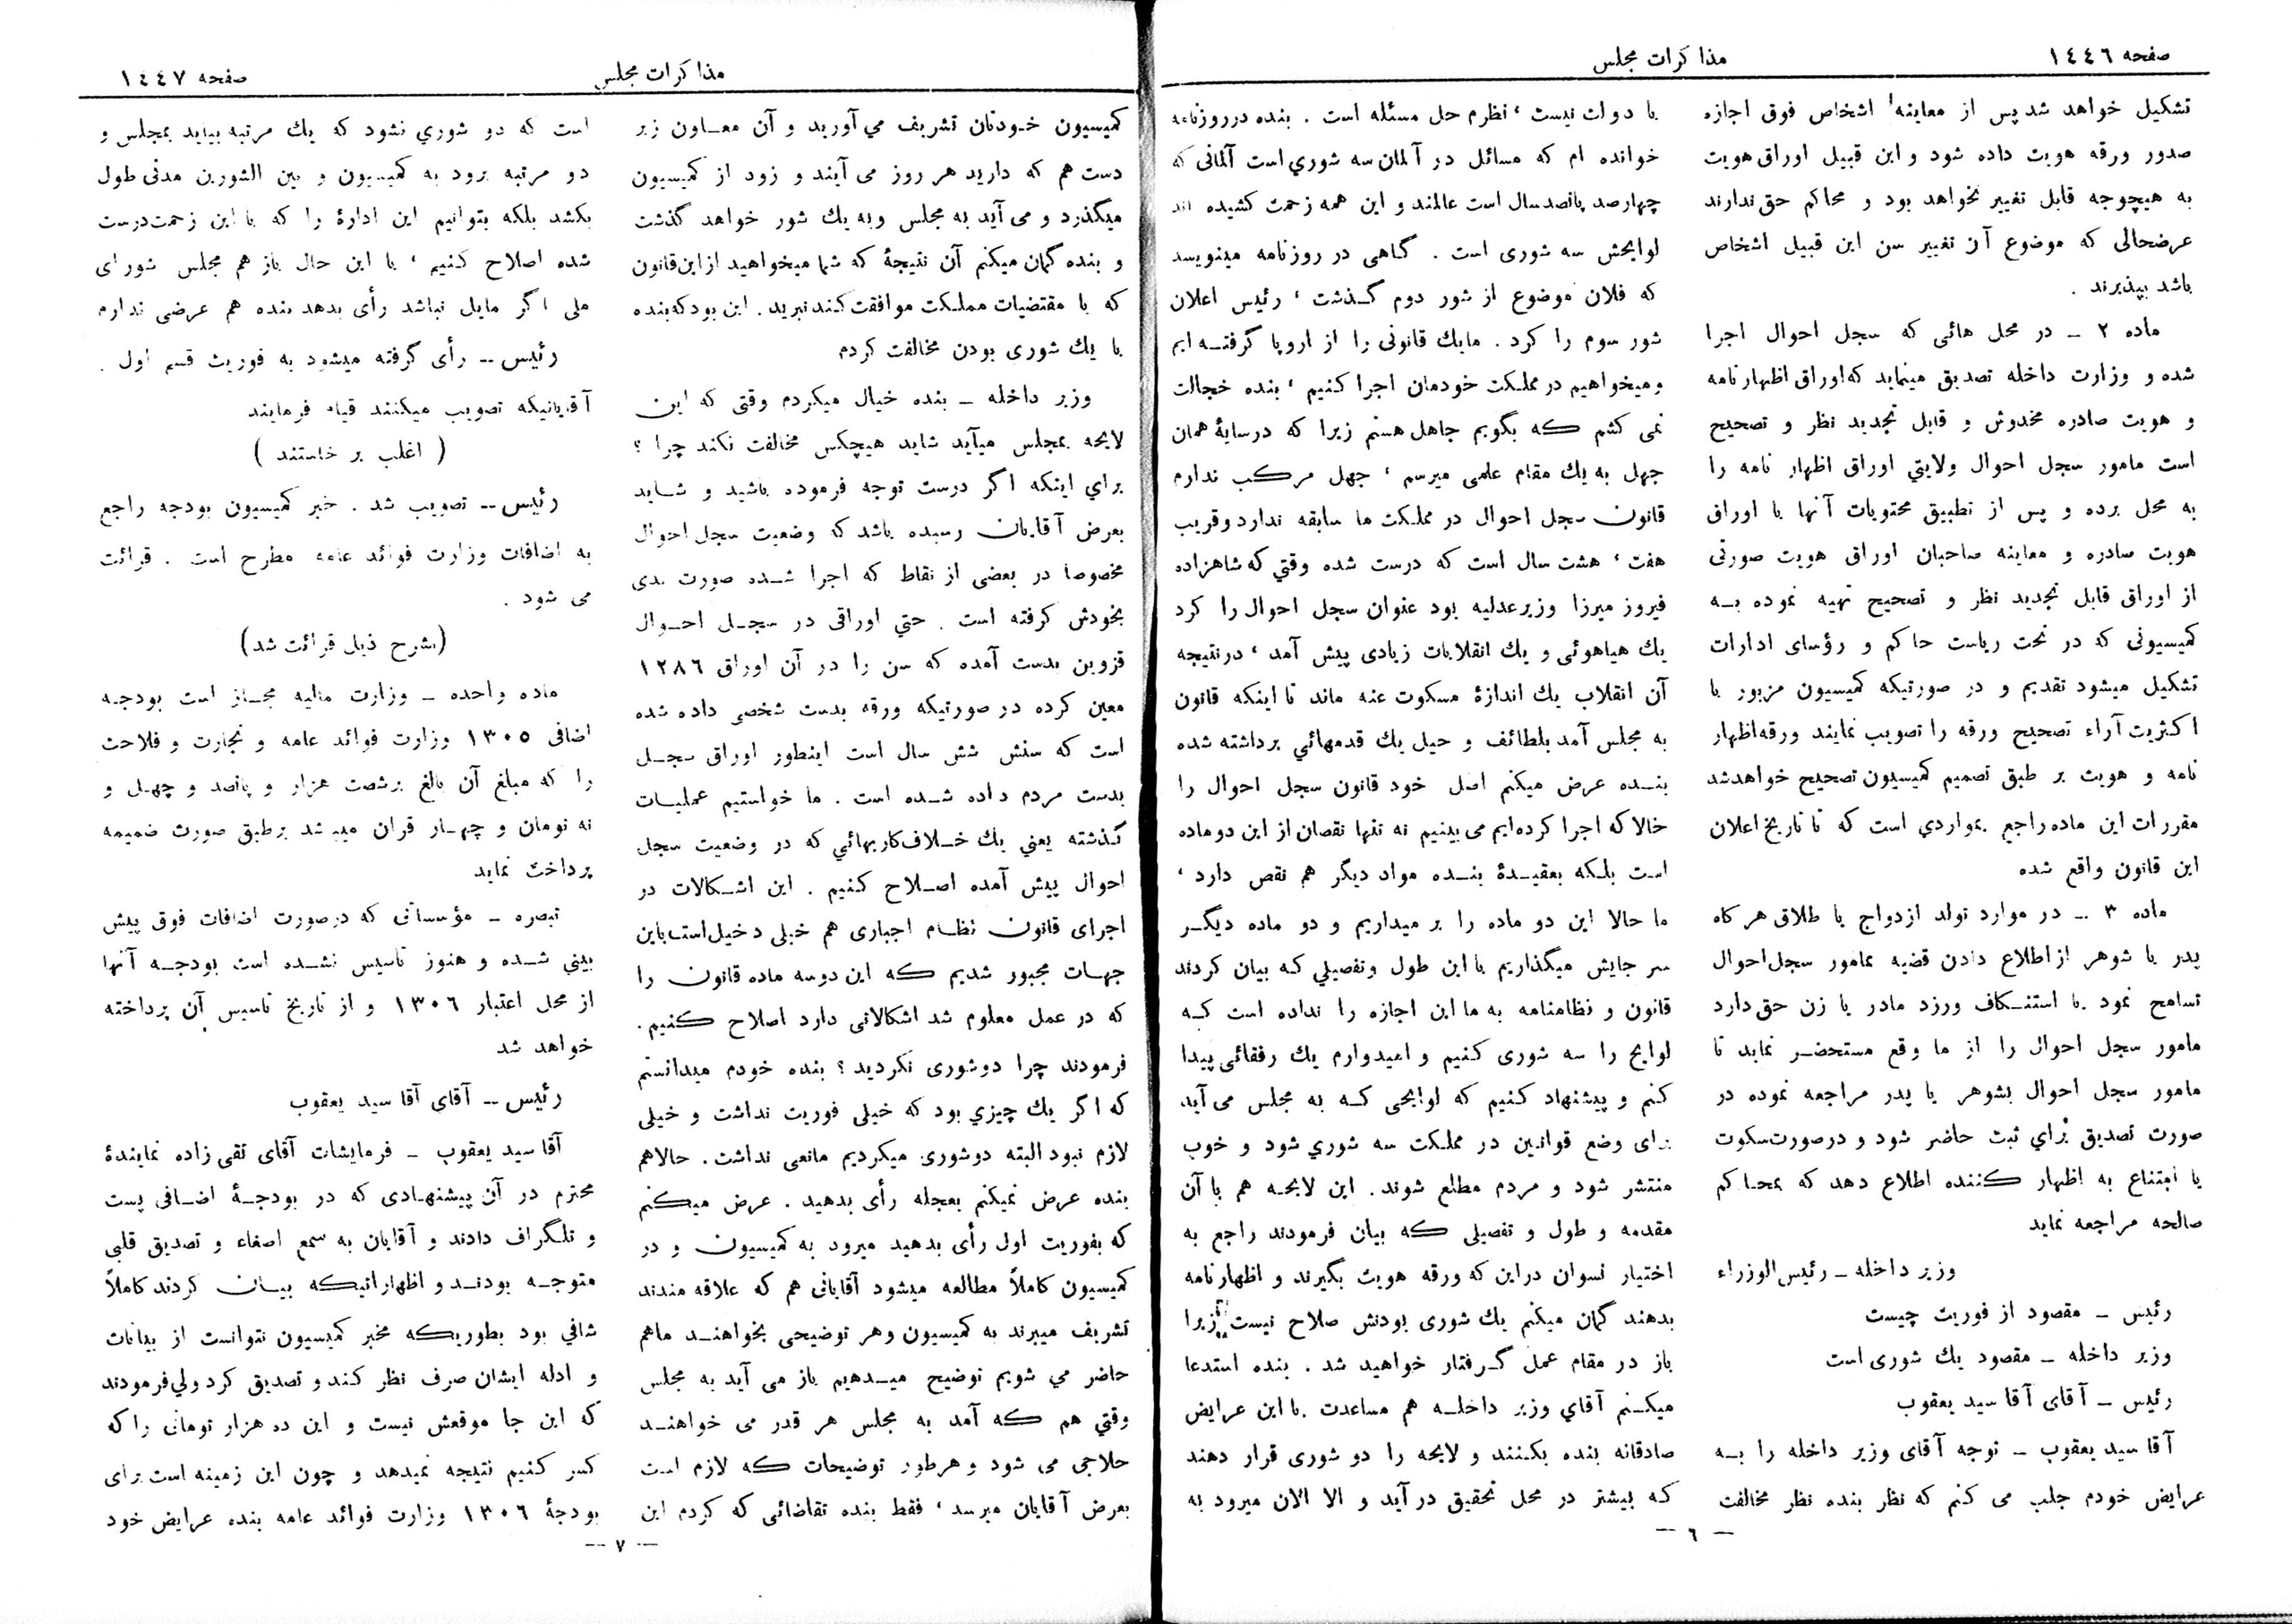 صفحه ١٤٤٦
مذاکرات مجلس
تشکیل خواهد شد پس از معاینه اشخاص فوق اجازه
صدور ورقه هویت داده شود و این قبیل اوراق هویت
به هیچوجه قابل تغییر نخواهد بود و محاکم حق ندارند
عرضحالی که موضوع آن تغییر سن این قبیل اشخاص
باشد بپذیرند .
ماده ۲ ـ در محل هائی که سجل احوال اجرا
شده و وزارت داخله تصدیق مینماید که اوراق اظهار نامه
و هویت صادره مخدوش و قابل تجدید نظر و تصحیح
است مامور سجل احوال ولایتي اوراق اظهار نامه را
به محل برده و پس از تطبیق محتویات آنها با اوراق
هویت صادره و معاینه صاحبان اوراق هویت صورتی
از اوراق قابل تجدید نظر و تصحیح تهیه نموده بـه
کمیسیونی که در تحت ریاست حاکم و رؤسای ادارات
تشکیل میشود تقدیم و در صورتیکه کمیسیون مزبور با
اکثریت آراء تصحیح ورقه را تصویب نمایند ورقه اظهار
نامه و هویت بر طبق تصمیم کمیسیون تصحیح خواهد شد
مقررات این ماده راجع بمواردي است که تا تاریخ اعلان
این قانون واقع شده
ماده ۳ ـ در موارد تولد ازدواج یا طلاق هرگاه
پدر یا شوهر از اطلاع دادن قضیه بمامور سجل احوال
تسامح نمود یا استنـکاف ورزد مادر یا زن حق دارد
مامور سجل احوال را از ما وقع مستحضر نماید تا
مامور سجل احوال بشوهر یا پدر مراجعه نموده در
صورت تصدیق برای ثبت حاضر شود و در صورت سکوت
یا امتناع به اظهار کننده اطلاع دهد که بمحاکم
صالحه مراجعه نماید
وزیر داخله ـ رئیس الوزراء
رئیس ـ مقصود از فوریت چیست
وزیر داخله ـ مقصود یك شوری است
رئیس ـ آقای آقا سید یعقوب
آقا سید یعقوب ـ توجه آقای وزیر داخله را بـه
عرایض خودم جلب می کنم که نظر بنده نظر مخالفت
با دولت نیست ، نظرم حل مسئله است . بنده در روزنامه
خوانده ام که مسائل در آلمان سه شوري است آلمانی که
چهارصد پانصد سال است عالمند و این همه زحمت کشیده اند
لوایحش سه شوری است . گاهی در روزنامه مینویسد
که فلان موضوع از شور دوم گـذشت ، رئیس اعلان
شور سوم را کرد . ما یك قانونی را از اروپا گرفتـه ایم
و میخواهیم در مملکت خودمان اجرا کنیم ، بنده خجالت
نمی کشم که بگویم جاهل هستم زیرا که در سایهٔ همان
جهل به یك مقام علمی میرسم ، جهل مرکب ندارم
قانون سجل احوال در مملکت ما سابقه ندارد و قریب
هفت ، هشت سال است که درست شده وقتي که شاهزاده
فیروز میرزا وزیر عدلیه بود عنوان سجل احوال را کرد
یك هیاهوئی و یك انقلابات زیادی پیش آمد ، در نتیجه
آن انقلاب یك اندازهٔ مسکوت عنه ماند تا اینکه قانون
به مجلس آمد بلطائف و حیل یك قدمهائي برداشته شده
بنـده عرض میکنم اصل خود قانون سجل احوال را
حالا که اجرا کرده‌ایم می بینیم نه تنها نقصان از این دو ماده
است بلکه بعقیـدهٔ بنـده مواد دیگر هم نقص دارد ،
ما حالا این دو ماده را بر میداریم و دو ماده دیگـر
سر جایش میگذاریم با این طول و تفصیلي که بیان کردند
قانون و نظامنامه به ما این اجازه را نداده است که
لوایح را سه شوری کنیم و امیدوارم یك رفقائی پیدا
کنم و پیشنهاد کنیم که لوایحی کـه به مجلس می آید
برای وضع قوانین در مملکت سه شوري شود و خوب
منتشر شود و مردم مطلع شوند . این لایحـه هم با آن
مقدمه و طول و تفصیلی که بیان فرمودند راجع به
اختیار نسوان در این که ورقه هویت بگیرند و اظهار نامه
بدهند گمان میکنم یك شوری بودنش صلاح نیست زیرا
باز در مقام عمل گـرفتار خواهید شد . بنده استدعا
میکنم آقاي وزیر داخلـه هم مساعدت با این عرایض
صادقانه بنده بکنند و لایحه را دو شوری قرار دهند
که بیشتر در محل تحقیق در آید و الا الان میرود به
— ٦ —
مذاکرات مجلس
صفحه ١٤٤٧
کمیسیون خـودتان تشریف می آورید و آن معـاون زیر
دست هم که دارید هر روز می آیند و زود از کمیسیون
میگذرد و می آید به مجلس و به یك شور خواهد گذشت
و بنده گمان میکنم آن نتیجهٔ که شما میخواهید از این قانون
که با مقتضیات مملکت موافقت کند نبرید . این بود که بنده
با یك شوری بودن مخالفت کردم
وزیر داخله ـ بنده خیال میکردم وقتی که این
لایحه بمجلس میآید شاید هیچکس مخالفت نکند چرا ؟
براي اینکه اگر درست توجه فرموده باشید و شـاید
بعرض آقایان رسیده باشد که وضعیت سجل احوال
مخصوصا در بعضی از نقاط که اجرا شـده صورت بدی
بخودش گرفته است . حتي اوراقی در سجـل احـوال
قزوین بدست آمده که سن را در آن اوراق ۱۲۸٦
معین کرده در صورتیکه ورقه بدست شخصی داده شده
است که سنش شش سال است اینطور اوراق سجـل
بدست مردم داده شـده است . ما خواستیم عملیـات
گـذشته یعني یك خـلاف کاریهائي که در وضعیت سجل
احوال پیش آمده اصـلاح کنیم . این اشـکالات در
اجرای قانون نظـام اجباری هم خیلی دخیل است باین
جهـات مجبور شدیم که این دو سه ماده قانون را
که در عمل معلوم شد اشکالاتی دارد اصلاح کنیم .
فرمودند چرا دو شوری نکردید ؟ بنده خودم میدانستم
که اگر یك چیزي بود که خیلی فوریت نداشت و خیلی
لازم نبود البته دو شوری میکردیم مانعی نداشت . حالا هم
بنده عرض نمیکنم بعجله رأی بدهید . عرض میکنم
که بفوریت اول رأی بدهید میرود به کمیسیون و در
کمیسیون کاملاً مطالعه میشود آقایانی هم که علاقه مندند
تشریف میبرند به کمیسیون و هر توضیحی بخواهنـد ما هم
حاضر می شویم توضیح میـدهیم باز می آید به مجلس
وقتي هم که آمد به مجلس هر قدر می خواهنـد
حلاجی می شود و هر طور توضیحات که لازم است
بعرض آقایان میرسد ، فقط بنده تقاضائی که کردم این
است که دو شوري نشود که یك مرتبه بیاید بمجلس و
دو مرتبه برود به کمیسیون و بین الشورین مدتی طول
بکشد بلکه بتوانیم این ادارهٔ را که با این زحمت درست
شده اصلاح کنیم ، با این حال باز هم مجلس شورای
ملی اگر مایل نباشد رأی بدهد بنده هم عرضی ندارم
رئیس ــ رأی گرفته میشود به فوریت قسم اول .
آقایانیکه تصویب میکنند قیام فرمایند
( اغلب بر خاستند )
رئیس ــ تصویب شد . خبر کمیسیون بودجه راجع
به اضافات وزارت فوائد عامه مطرح است . قرائت
می شود .
(بشرح ذیل قرائت شد)
ماده واحده ـ وزارت مالیه مجـاز است بودجـه
اضافی ۱۳۰٥ وزارت فوائد عامه و تجارت و فلاحت
را که مبلغ آن بالغ بر شصت هزار و پانصد و چهـل و
نه تومان و چهـار قران میباشد بر طبق صورت ضمیمه
پرداخت نماید
تبصره ـ مؤسساتی که در صورت اضافات فوق پیش
بینی شـده و هنوز تاسیس نشـده است بودجـه آنها
از محل اعتبار ۱۳۰٦ و از تاریخ تاسیس آن پرداخته
خواهد شد
رئیس ــ آقای آقا سید یعقوب
آقا سید یعقوب ـ فرمایشات آقای تقی زاده نمایندهٔ
محترم در آن پیشنهـادی که در بودجـهٔ اضـافی پست
و تلگراف دادند و آقایان به سمع اصغاء و تصدیق قلبی
متوجـه بودنـد و اظهاراتیکه بیـان کردند کاملاً
شافي بود بطوریکه مخبر کمیسیون نتوانست از بیانات
و ادله ایشان صرف نظر کند و تصدیق کرد ولي فرمودند
که این جا موقعش نیست و این ده هزار تومانی را که
کسر کنیم نتیجه نمیدهد و چون این زمینه است برای
بودجهٔ ۱۳۰٦ وزارت فوائد عامه بنده عرایض خود
— ۷ —